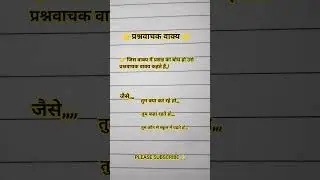 👉प्रश्नवाचक वाक्य👈
👉जिस वाक्य में प्रश्न का बोध हो उसे
प्रश्नवाचक वाक्य कहते हैं,/
जैसे,,,,
तुम क्या कर रहे हो,,,
तुम कहा रहते हो,,,
तुम कौन से स्कूल में पढते हो,,,
PLEASE SUBSCRIBE